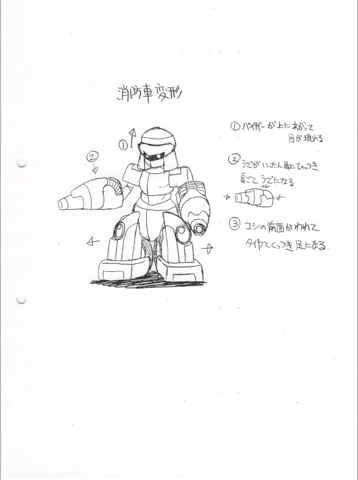 消防車変形
①
②
① バイザーが上にあがって
目が現れる
② うでがいったん肩にひっつき
肩ごと うでになる
③ コシの前面がわれて
タイヤとくっつき 足になる